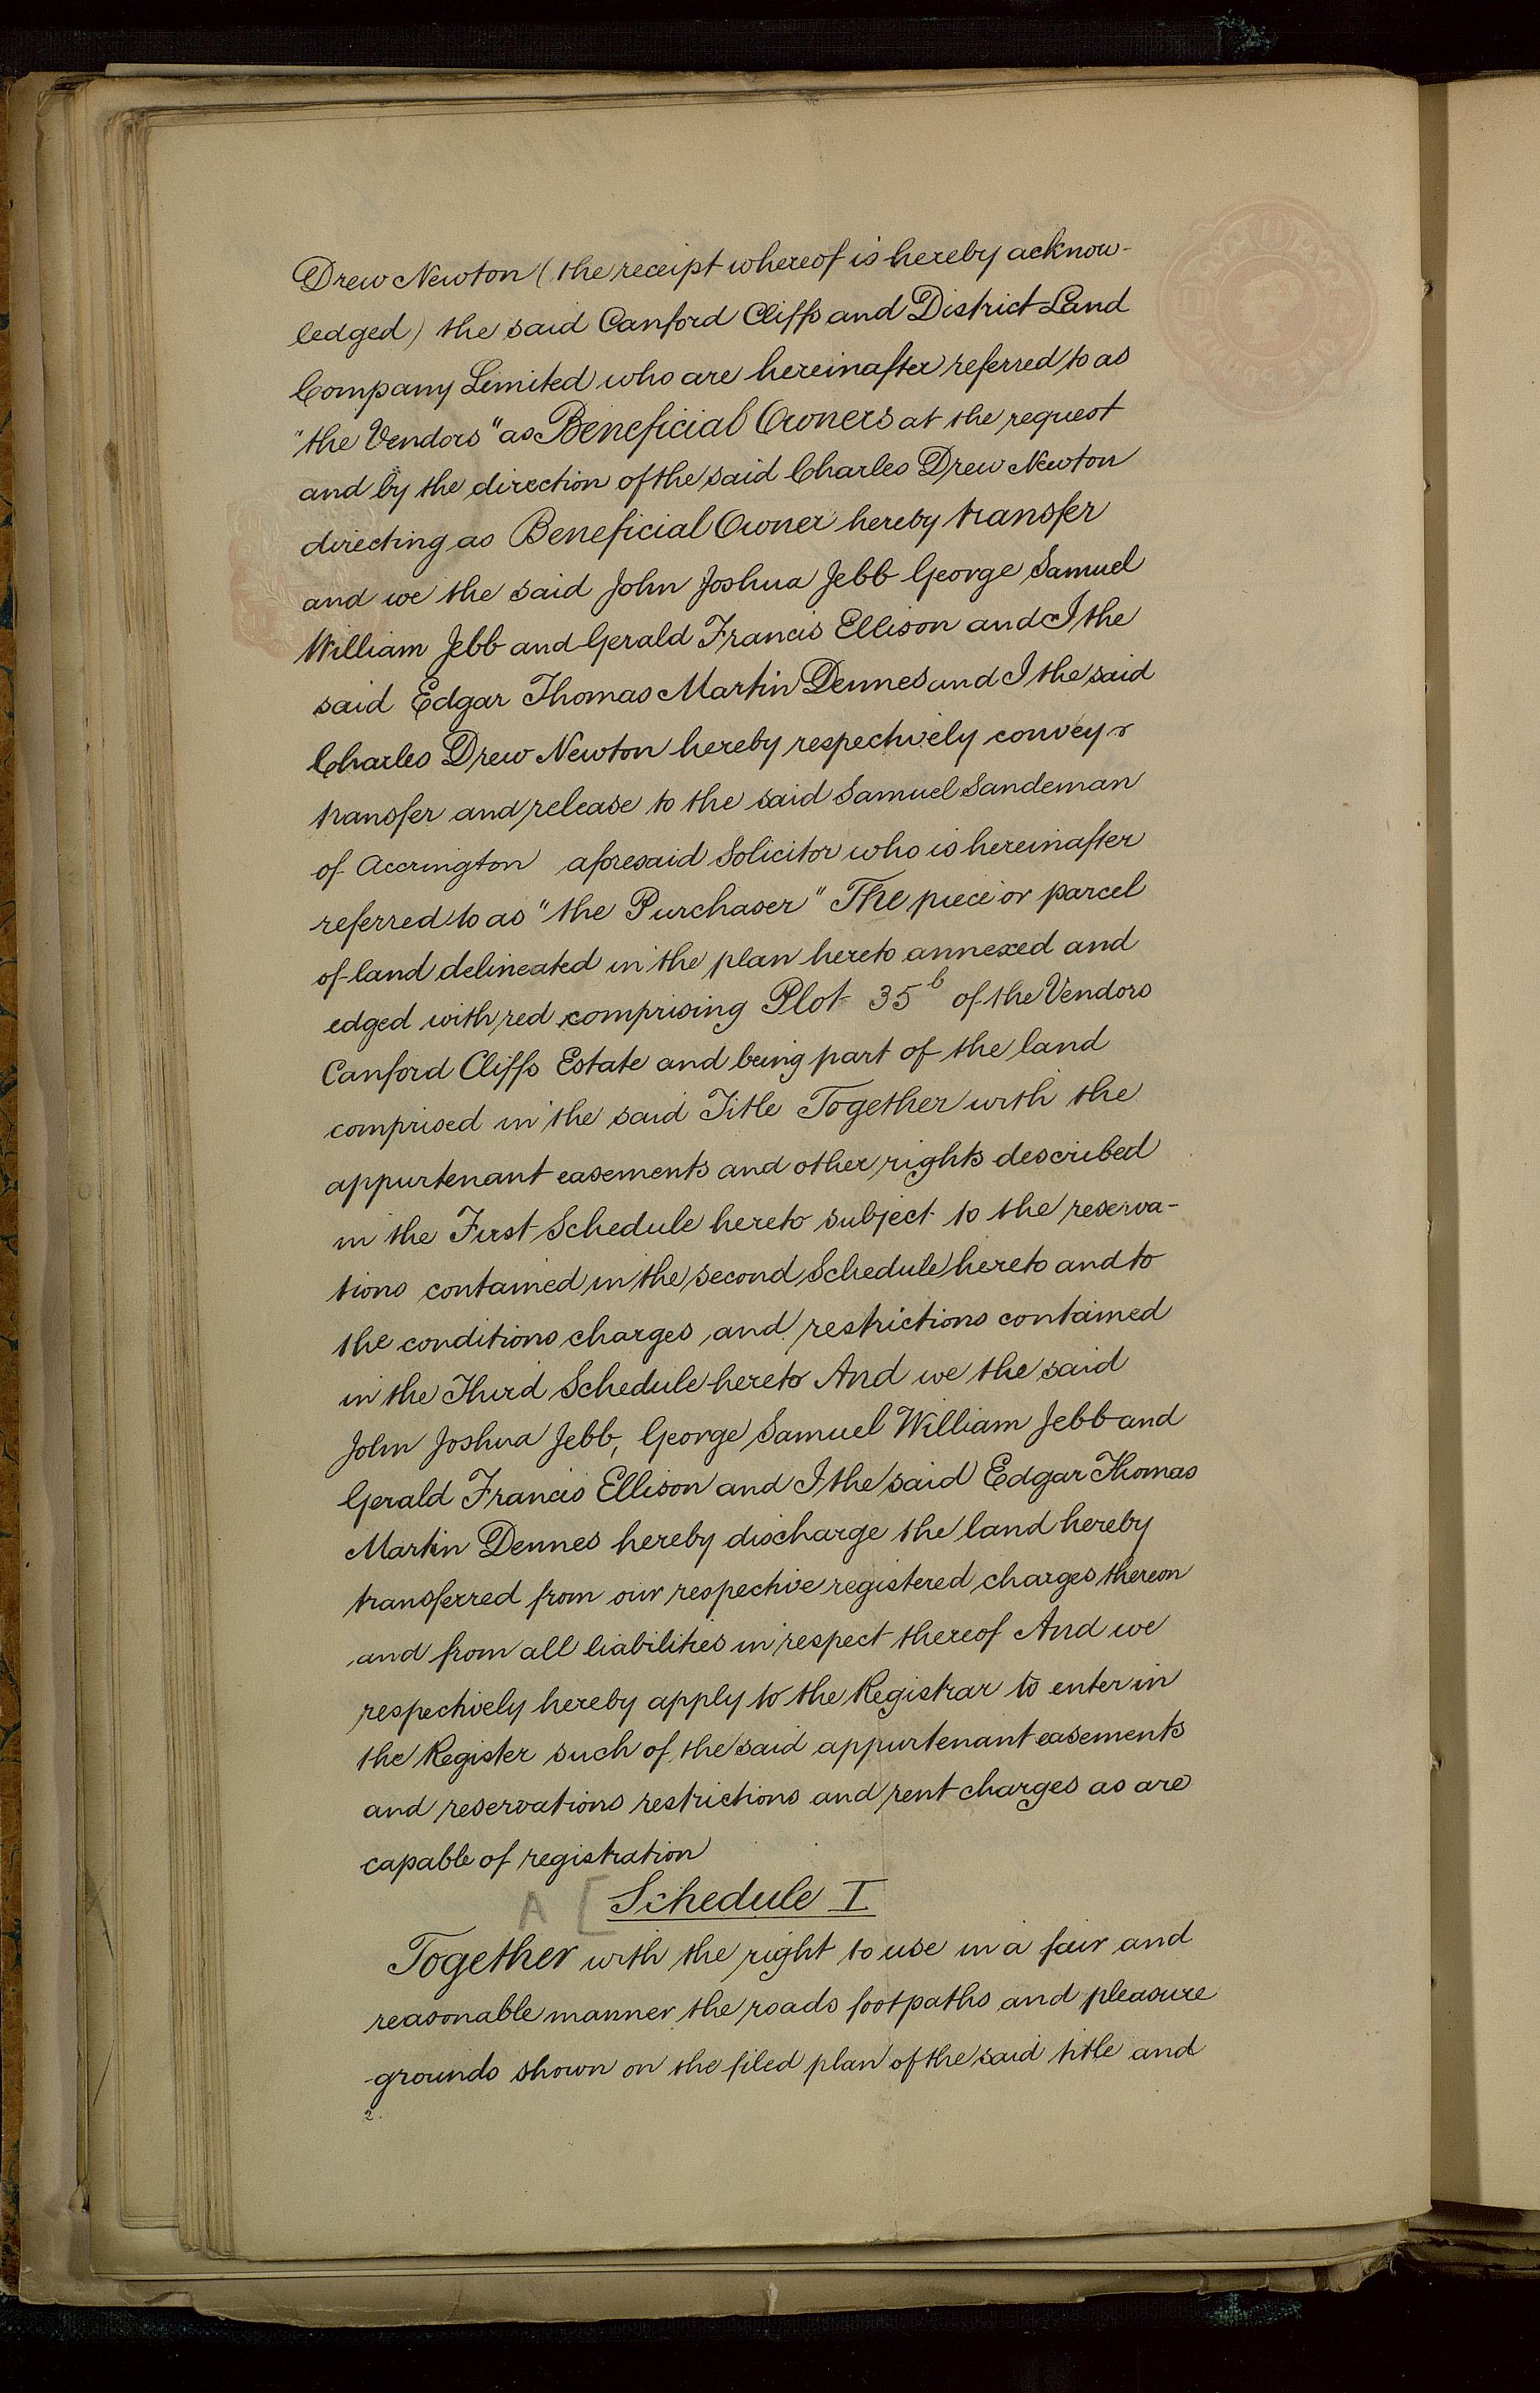 Drew Newton (the receipt whereof is hereby acknow-
ledged) the said Canford Cliffs and District Land
Company Limited who are hereinafter referred to as
"the Vendors" as Beneficial Owners at the request
and by the direction of the said Charles Drew Newton
directing as Beneficial Owner hereby transfer
and we the said John Joshua Jebb George Samuel
William Jebb and Gerald Francis Ellison and I the
said Edgar Thomas Martin Dennes and I the said
Charles Drew Newton hereby respectively convey &
transfer and release to the said Samuel Sandeman
of Accrington aforesaid Solicitor who is hereinafter
referred to as "the Purchaser" The piece or parcel
of land delineated in the plan hereto annexed and
edged with red comprising Plot 35b of the Vendors
Canford Cliffs Estate and being part of the land
comprised in the said Title Together with the
appurtenant easements and other rights described
in the First Schedule hereto subject to the reserva-
tions contained in the second Schedule hereto and to
the conditions charges and restrictions contained
in the Third Schedule hereto And we the said
John Joshua Jebb, George Samuel William Jebb and
Gerald Francis Ellison and I the said Edgar Thomas
Martin Dennes hereby discharge the land hereby
transferred from our respective registered charges thereon
and from all liabilities in respect thereof And we
respectively hereby apply to the Registrar to enter in
the Register such of the said appurtenant easements
and reservations restrictions and rent charges as are
capable of registration
A [Schedule I
Together with the right to use in a fair and
reasonable manner the roads footpaths and pleasure
grounds shown on the filed plan of the said title and
2.